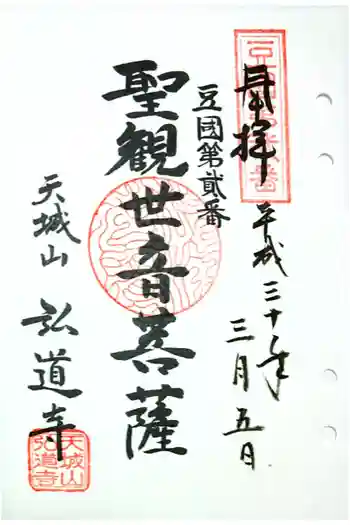 奉拝
平成三十年
三月五日
豆國第貳番
聖観世音菩薩
天城山
弘道寺
天城山
弘道寺